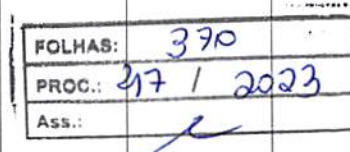 FOLHAS: 370
PROC.: 217 / 2023
Ass.: